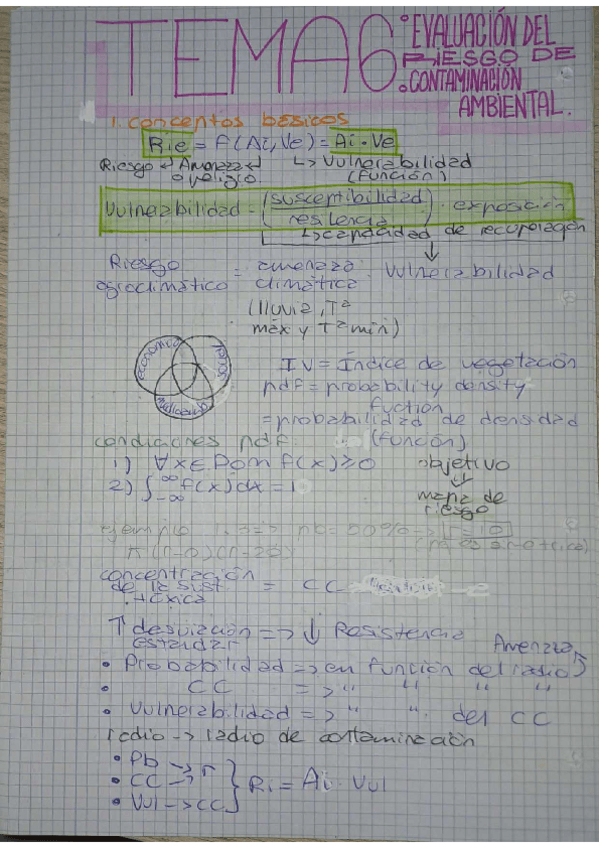 TEMA 6
EVALUACIÓN DEL
RIESGO DE
CONTAMINACIÓN
AMBIENTAL.
1. conceptos básicos
Rie = f(Ai, Ve) = Ai · Ve
Riesgo Amenaza ↳ Vulnerabilidad
o peligro (función)
Vulnerabilidad = (susceptibilidad / resilencia) · exposición
↳ capacidad de recuperación
Riesgo = amenaza · vulnerabilidad
agroclimático climática
(lluvia, Tª
máx y Tª min)
económica
ambiental
IV = Índice de vegetación
pdf = probability density
fuction
= probabilidad de densidad
(función)
condiciones pdf
1) ∀x ∈ Dom f(x) ≥ 0
2) ∫ f(x) dx = 1
objetivo
↓
mapa de
riesgo
ejemplo
concentración
de la sust = CC
tóxica
↑ desviación => ↓ Resistencia
estándar
Amenaza
• Probabilidad => en función del radio
• CC => " " " "
• Vulnerabilidad => " " del CC
radio → radio de contaminación
• Pb → r
• CC → r
• Vul → CC
} Ri = Ai · Vul